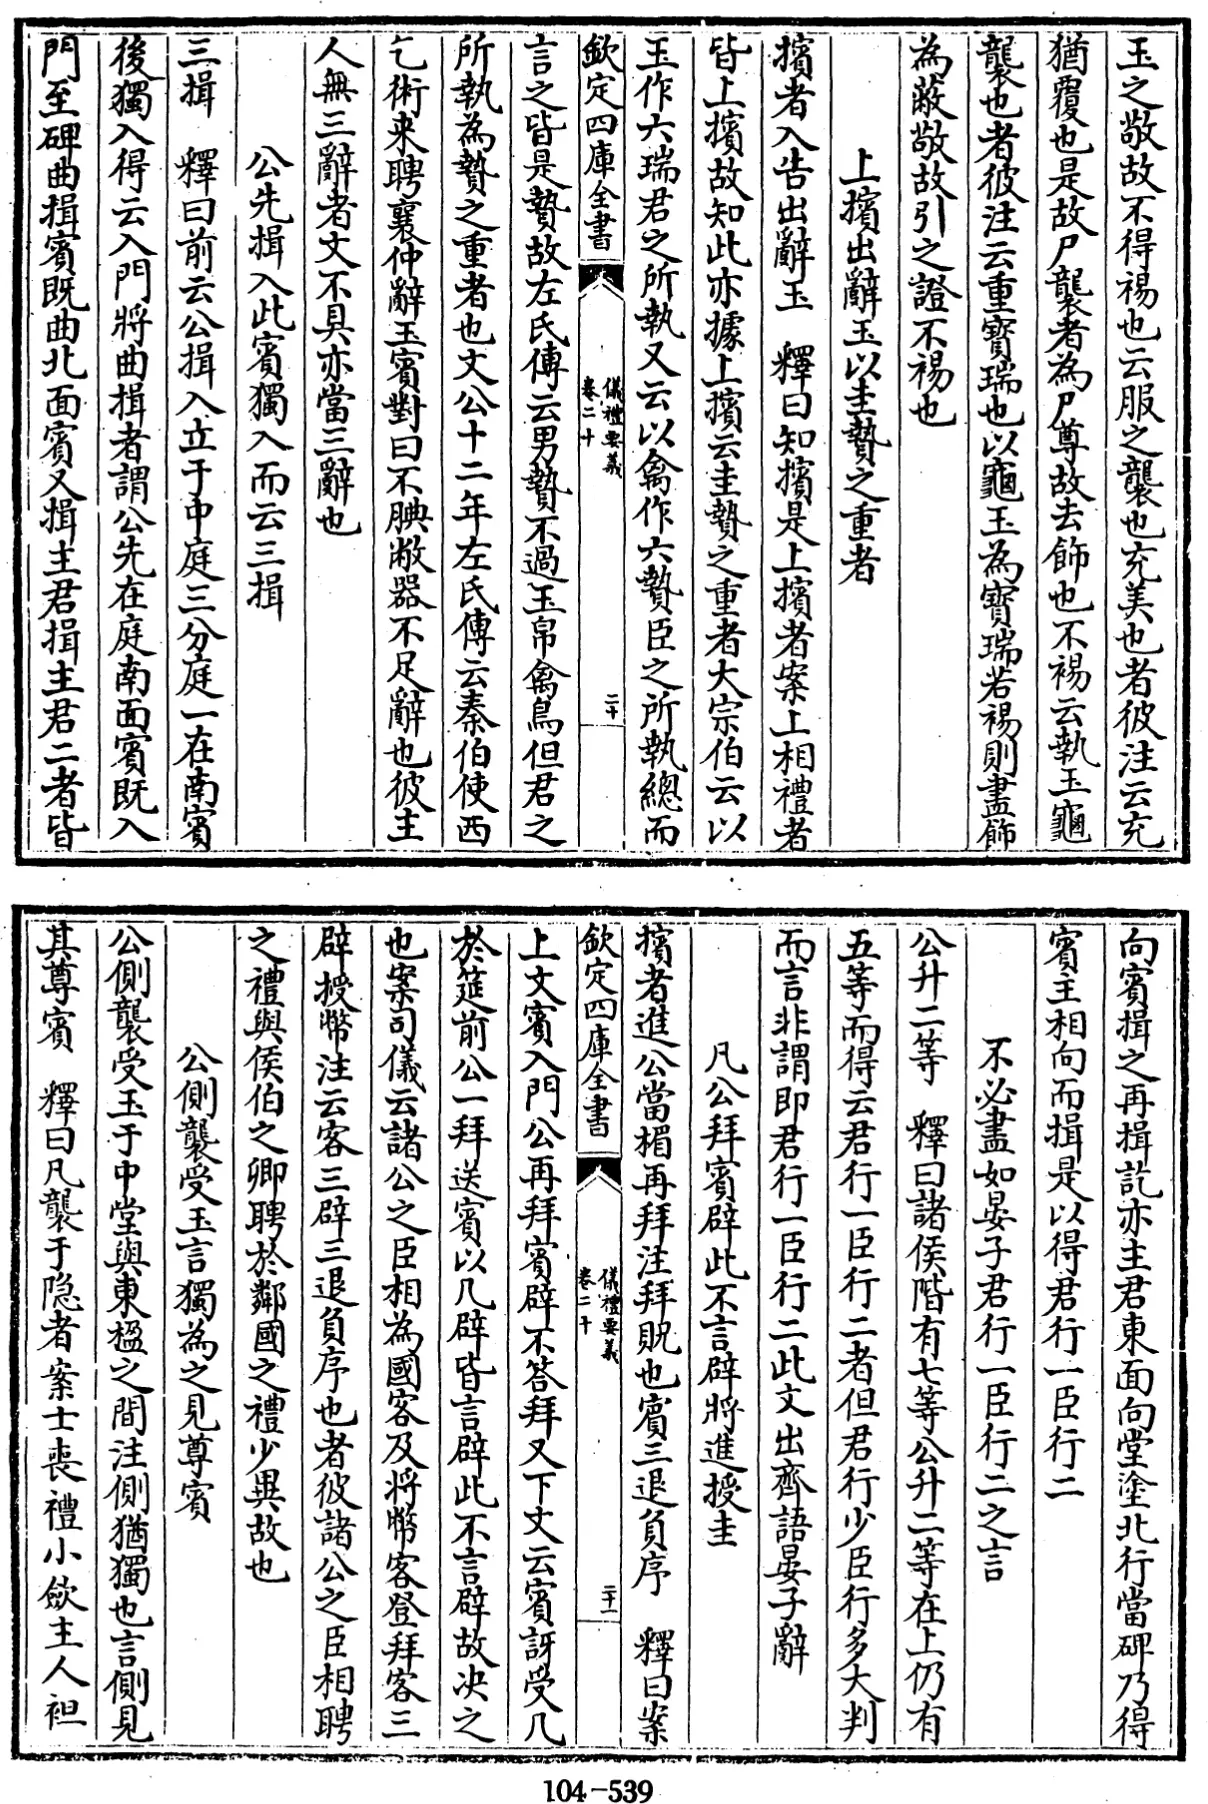 玉之敬故不得裼也云服之襲也充美也者彼注云充
猶覆也是故尸襲者為尸尊故去飾也不裼云執玉龜
襲也者彼注云重寶瑞也以龜玉為寶瑞若裼則盡飾
為蔽敬故引之證不裼也
上擯出辭玉以圭贄之重者
擯者入告出辭玉 釋曰知擯是上擯者案上相禮者
皆上擯故知此亦據上擯云圭贄之重者大宗伯云以
玉作六瑞君之所執又云以禽作六贄臣之所執總而
欽定四庫全書
儀禮要義
卷二十
二十
言之皆是贄故左氏傳云男贄不過玉帛禽鳥但君之
所執為贄之重者也文公十二年左氏傳云秦伯使西
乞術来聘襄仲辭玉賓對曰不腆敝器不足辭也彼主
人無三辭者文不具亦當三辭也
公先揖入此賓獨入而云三揖
三揖 釋曰前云公揖入立于中庭三分庭一在南賓
後獨入得云入門將曲揖者謂公先在庭南面賓既入
門至碑曲揖賓既曲北面賓又揖主君揖主君二者皆
向賓揖之再揖訖亦主君東面向堂塗北行當碑乃得
賓主相向而揖是以得君行一臣行二
不必盡如晏子君行一臣行二之言
公升二等 釋曰諸侯階有七等公升二等在上仍有
五等而得云君行一臣行二者但君行少臣行多大判
而言非謂即君行一臣行二此文出齊語晏子辭
凡公拜賓辟此不言辟將進授圭
擯者進公當楣再拜注拜貺也賓三退負序 釋曰案
欽定四庫全書
儀禮要義
卷二十
二十一
上文賓入門公再拜賓辟不答拜又下文云賓訝受几
於筵前公一拜送賓以几辟皆言辟此不言辟故决之
也案司儀云諸公之臣相為國客及將幣客登拜客三
辟授幣注云客三辟三退負序也者彼諸公之臣相聘
之禮與侯伯之卿聘於鄰國之禮少異故也
公側襲受玉言獨為之見尊賓
公側襲受玉于中堂與東楹之間注側猶獨也言側見
其尊賓 釋曰凡襲于隱者案士喪禮小歛主人袒
104-539